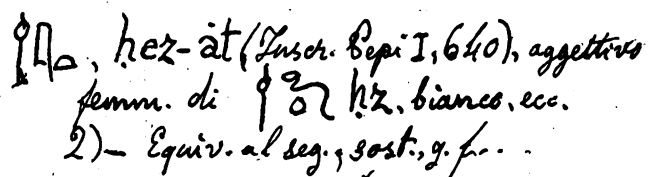 , ḥez-ȧt (Inscr. Pepi I, 640), aggettivo
femm. di ḥz, bianco, ecc.
2)— Equiv. al seg., sost., g. f...